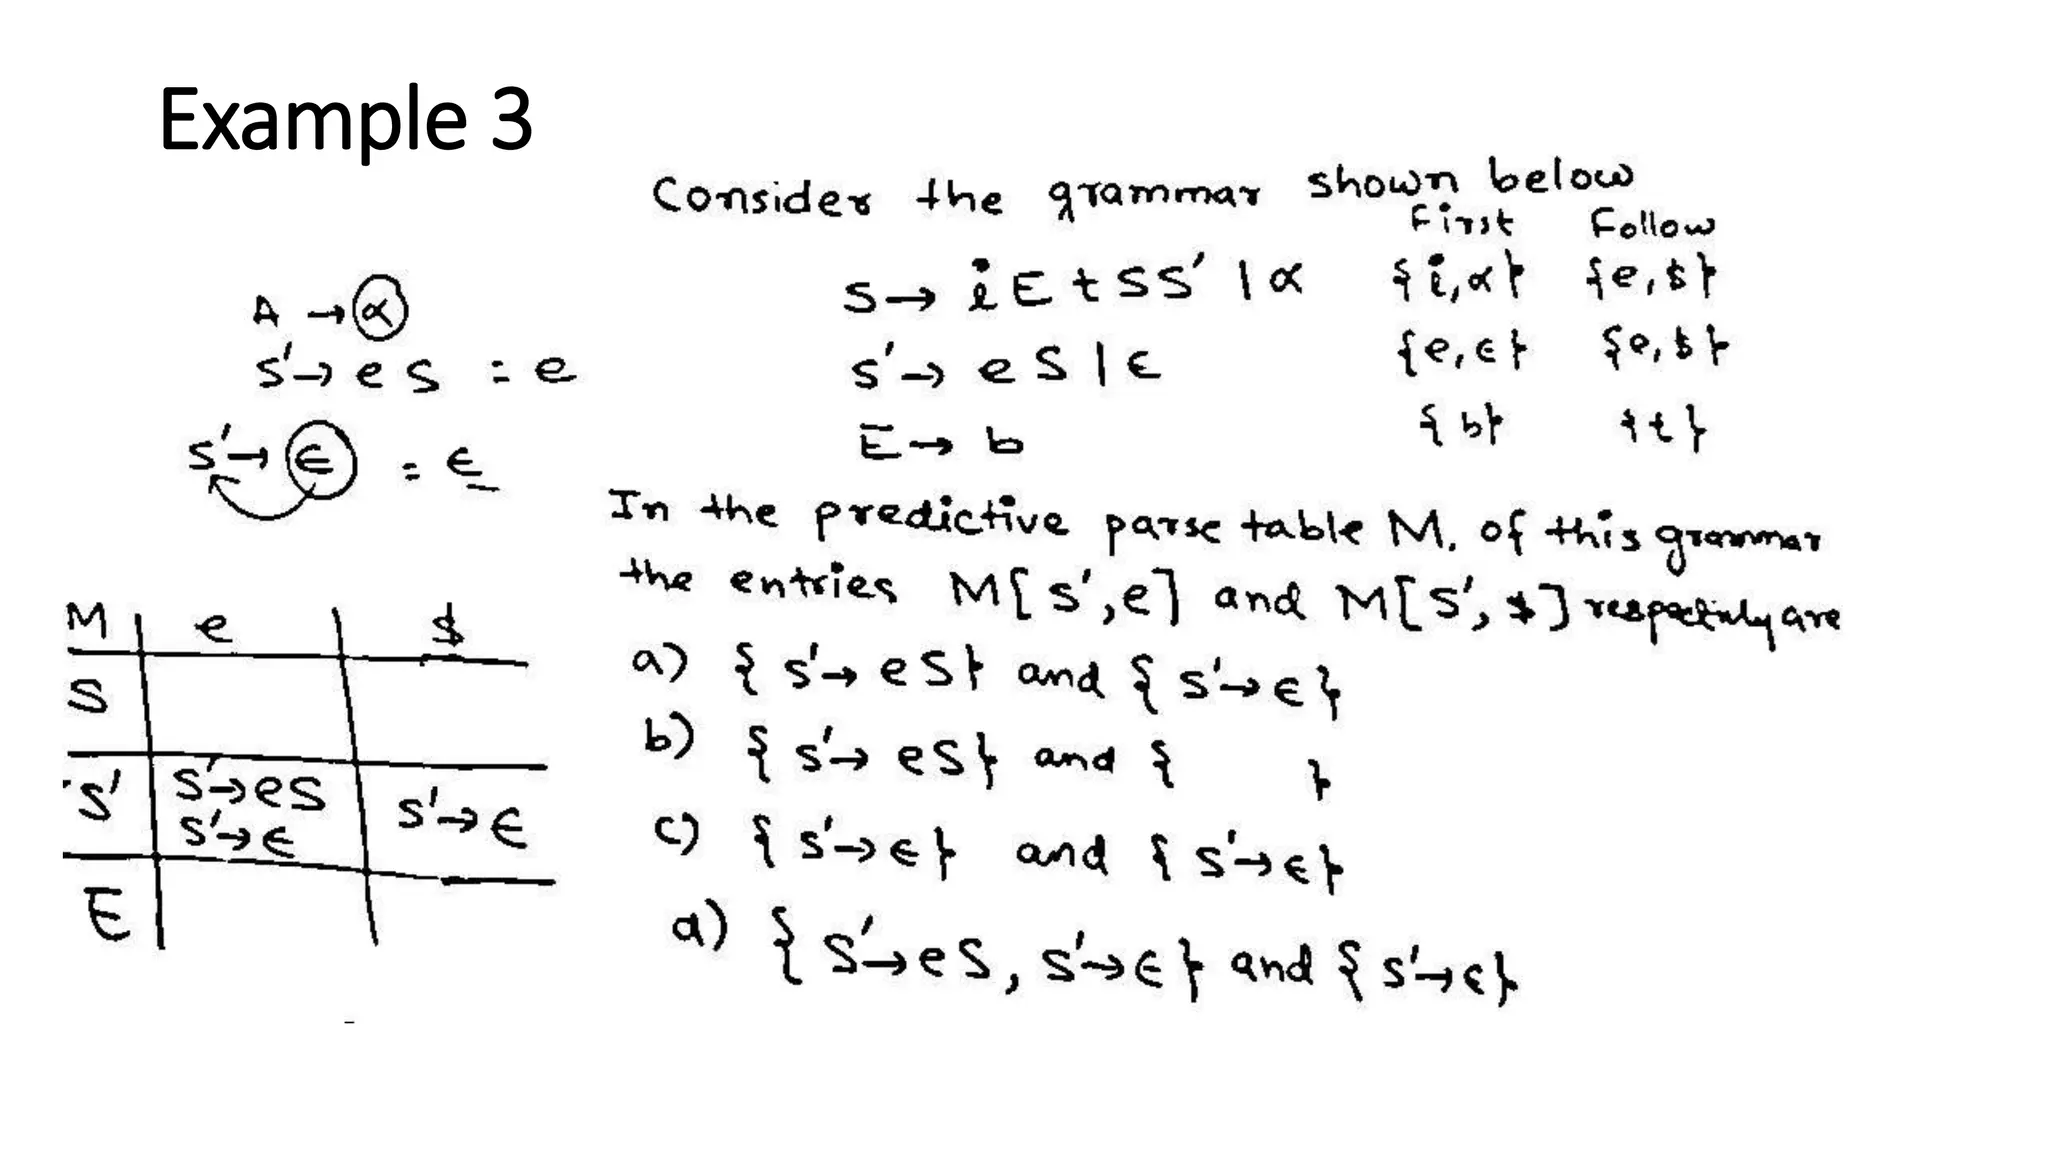 Example 3
Consider the grammar shown below
First Follow
S → iEtSS' | α {i,α} {e,$}
S' → eS | ε {e,ε} {e,$}
E → b {b} {t}
A → α
S' → eS = e
S' → ε = ε
In the predictive parse table M. of this grammar
the entries M[S',e] and M[S',$] respectively are
a) {S'→eS} and {S'→ε}
b) {S'→eS} and { }
c) {S'→ε} and {S'→ε}
d) {S'→eS, S'→ε} and {S'→ε}
M e $
S
S' S'→eS S'→ε
S'→ε
E